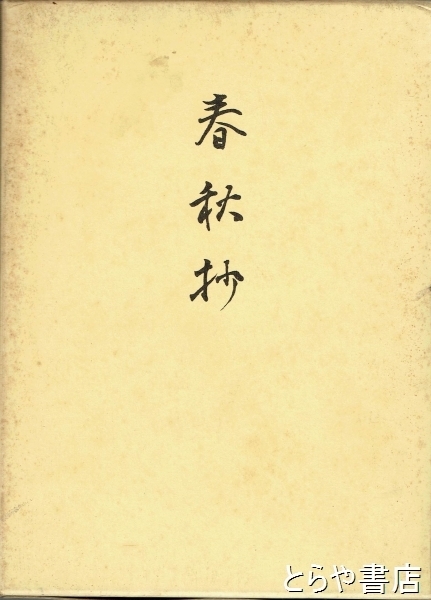 春秋抄
とらや書店